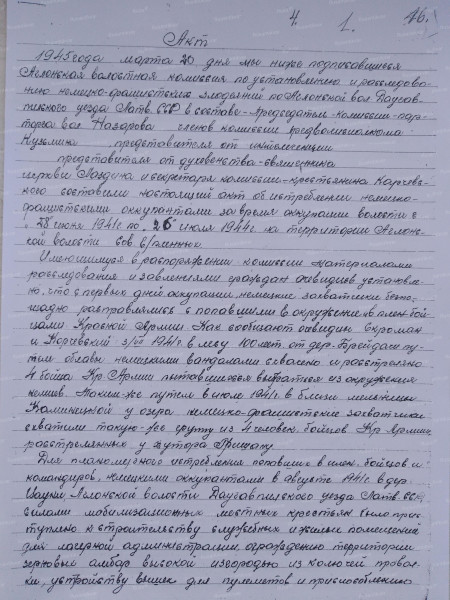 4. 1. 46.
Акт
1945 года марта 20 дня мы ниже подписавшиеся
Аглонская волостная комиссия по установлению и расследова-
нию немецко-фашистских злодеяний по Аглонской вол. Даугав-
пилского уезда Латв. ССР в составе - председателя комиссии - пар-
торга вол. Назарова членов комиссии предволисполкома
Кузмина представителя от интеллигенции
представителя от духовенства - священника
церкви и секретаря комиссии - крестьянина
составили настоящий акт об истреблении немецко-
фашистскими оккупантами за время оккупации волости с
28 июня 1941 г. по 26 июля 1944 г. на территории Аглон-
ской волости Сов. в/пленных.
Имеющимися в распоряжении комиссии материалами
расследования и заявлениями граждан очевидцев установле-
но, что с первых дней оккупации, немецкие захватчики беспо-
щадно расправлялись с попавшими в окружение и в плен бой-
цами Красной Армии. Как сообщают очевидцы
и 3/VII 1941 г. в лесу 100 мет. от дер. пу-
тем облавы немецкими вандалами схвачено и расстреляно
4 бойца Кр. Армии пытавшиеся выбраться из окружения
немцев. Таким-же путем в июле 1941 г. в близи местечка
у озера немецко-фашистские захватчики
схватили такую-же группу из 4 человек бойцов Кр. Армии
расстрелянные у хутора
Для планомерного истребления попавших в плен бойцов и
командиров, немецкими оккупантами в августе 1941 г. в дер.
Аглонской волости Даугавпилского уезда Латв. ССР
силами мобилизационных местных крестьян было прис-
туплено к строительству служебных и жилых помещений
для лагерной администрации, ограждению территории
зерновый амбар высокой изгородью из колючей проволо-
ки, устройству вышек для пулеметов и приспособлению